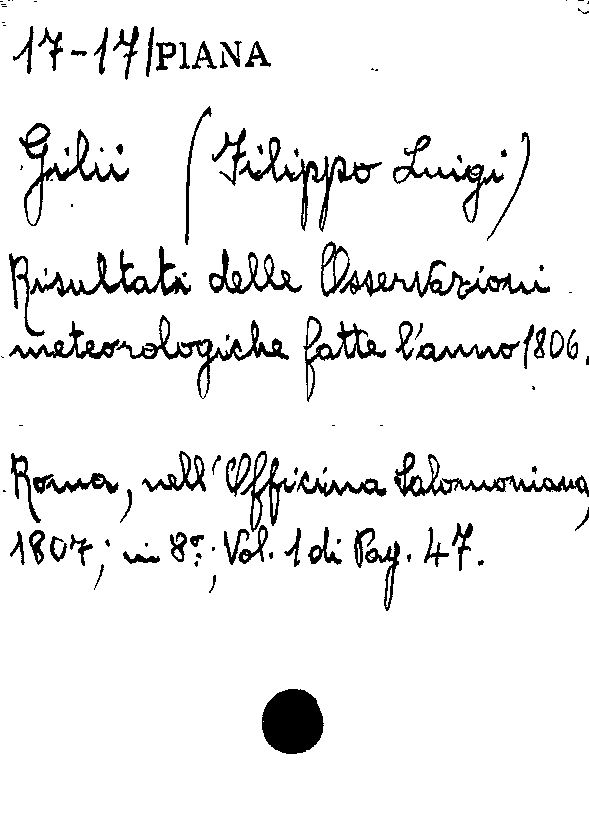 17-17/PIANA
Gilii (Filippo Luigi)
Risultati delle Osservazioni
meteorologiche fatte l'anno 1806.
Roma, nell'Officina Salomoniana,
1807; in 8º; Vol. 1 di Pag. 47.